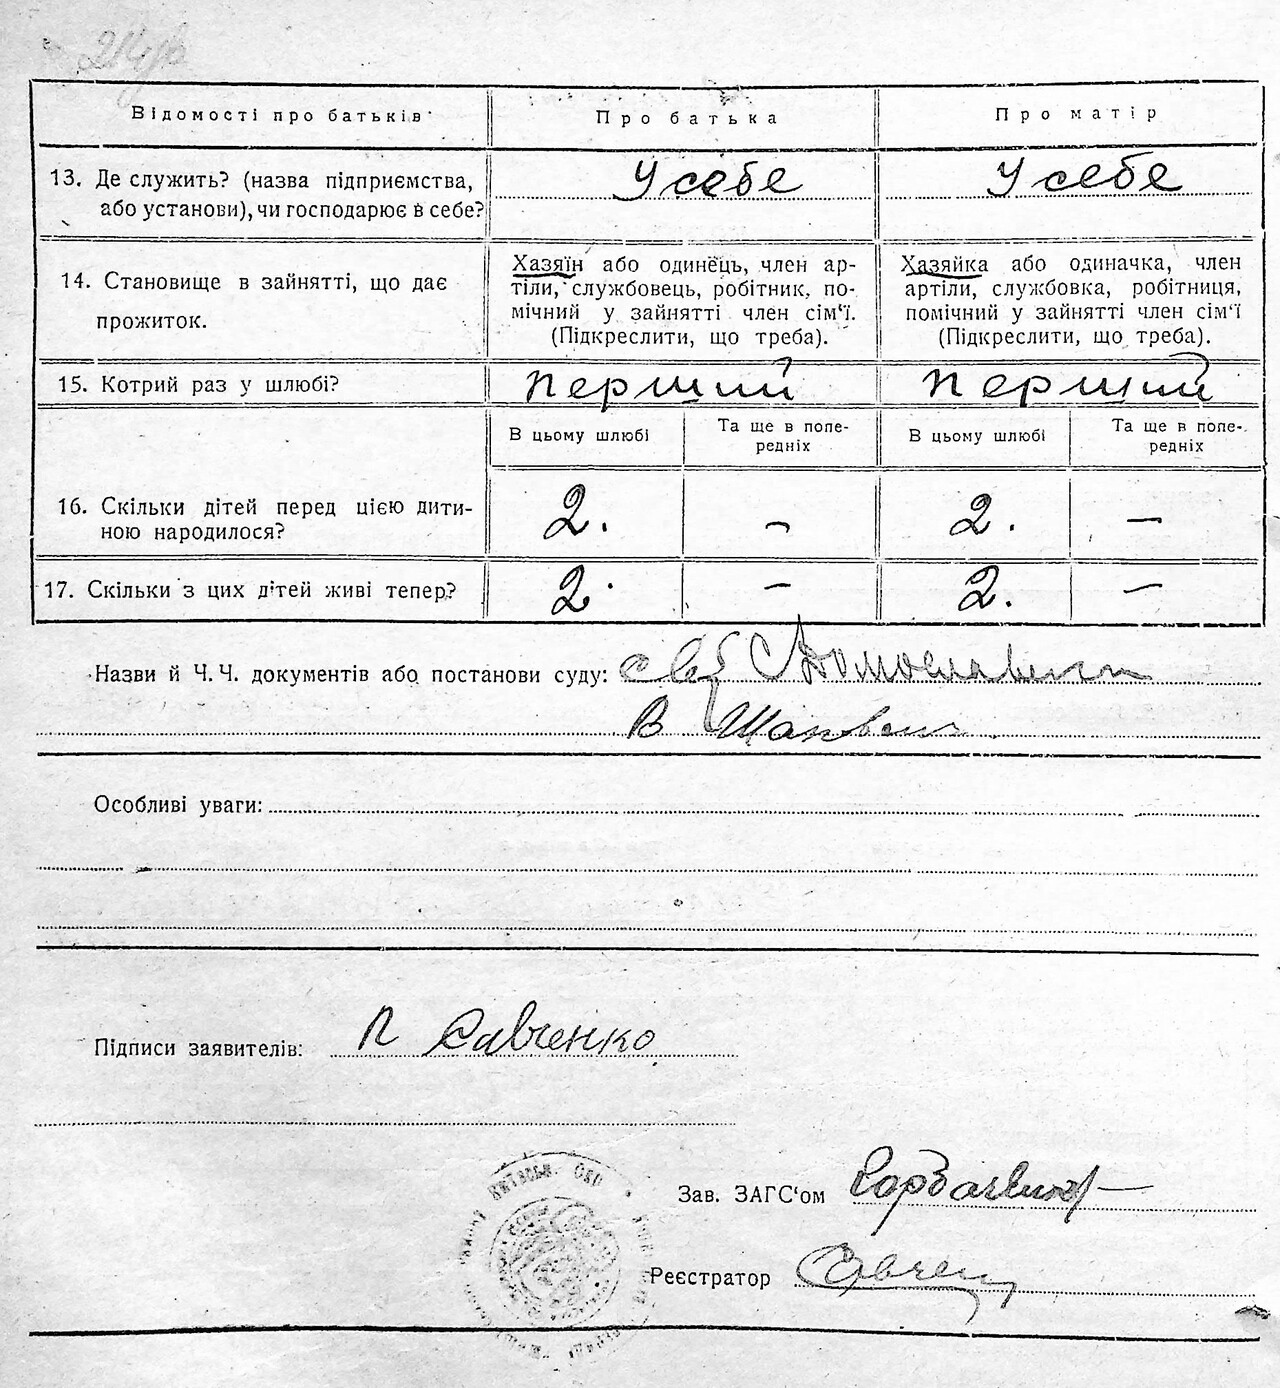 Відомості про батьків
Про батька
Про матір
13. Де служить? (назва підприємства,
або установи), чи господарює в себе?
У себе
У себе
14. Становище в зайнятті, що дає
прожиток.
Хазяїн або одинець, член ар-
тіли, службовець, робітник, по-
мічний у зайнятті член сім'ї.
(Підкреслити, що треба).
Хазяйка або одиначка, член
артіли, службовка, робітниця,
помічний у зайнятті член сім'ї
(Підкреслити, що треба).
15. Котрий раз у шлюбі?
перший
перший
В цьому шлюбі
Та ще в попе-
редніх
В цьому шлюбі
Та ще в попе-
редніх
16. Скільки дітей перед цією дити-
ною народилося?
2.
–
2.
–
17. Скільки з цих дітей живі тепер?
2.
–
2.
–
Назви й Ч. Ч. документів або постанови суду:
В
Особливі уваги:
Підписи заявителів: П Савченко
Зав. ЗАГС'ом
Реєстратор